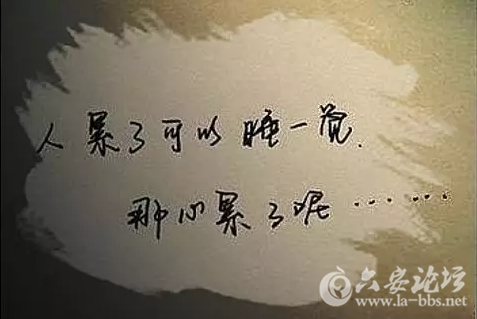 人累了可以睡一觉.
那心累了呢……
六安论坛
www.la-bbs.net